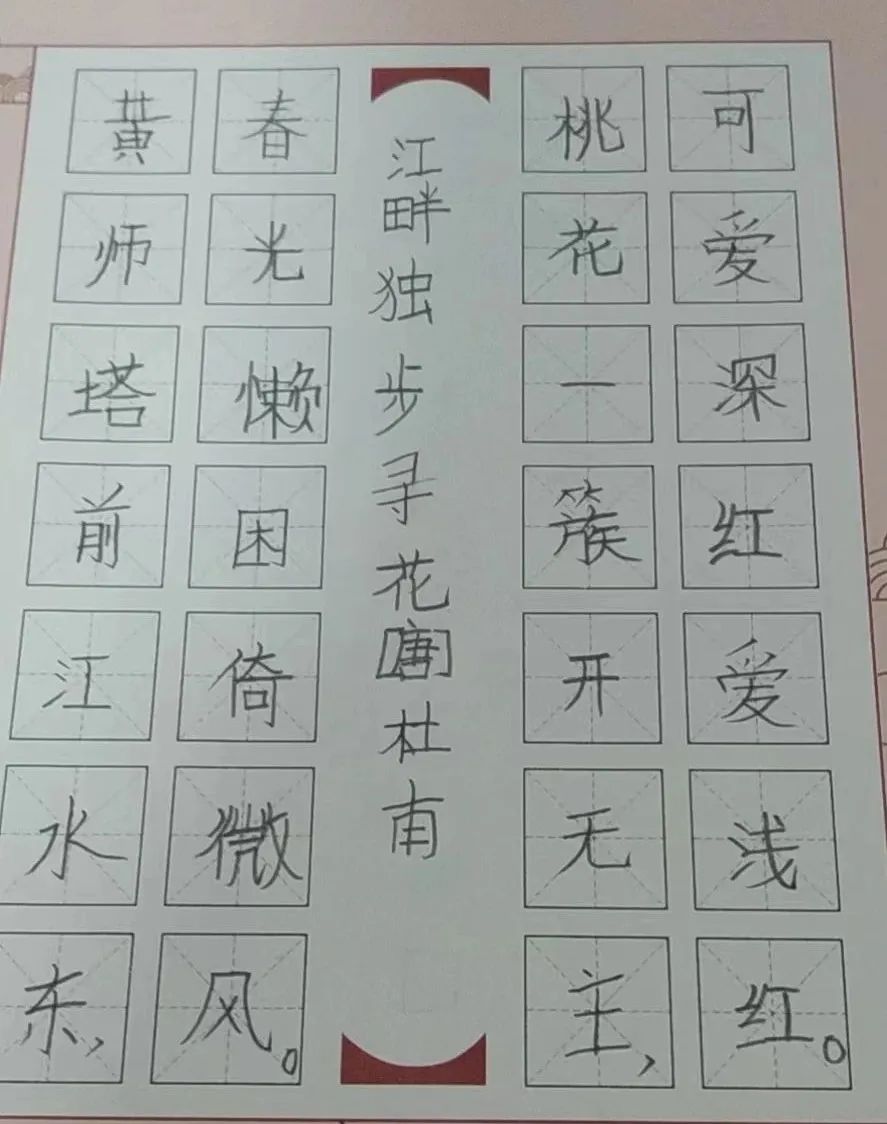 黄师塔前江水东，
春光懒困倚微风。
江畔独步寻花[唐]杜南
桃花一簇开无主，
可爱深红爱浅红。